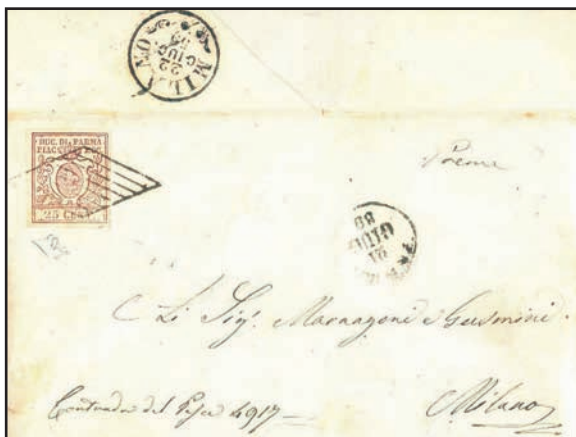 MILANO
22
GIUG.
59
DUC. DI PARMA
PIACENZA
25 CENT.
21
GIUG
59
Li Sig.ri Marnagoni e Gusmini.
Contrada del Pesce 4917
Milano